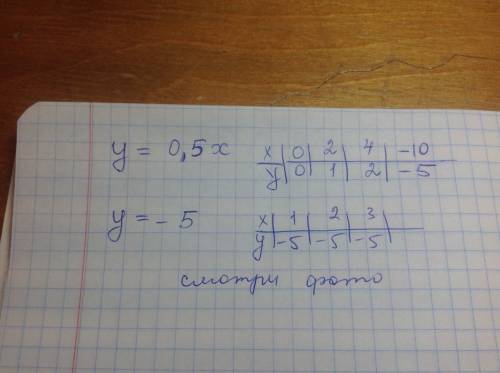 y = 0,5x
x | 0 | 2 | 4 | -10
y | 0 | 1 | 2 | -5
y = - 5
x | 1 | 2 | 3 |
y | -5 | -5 | -5 |
смотри фото